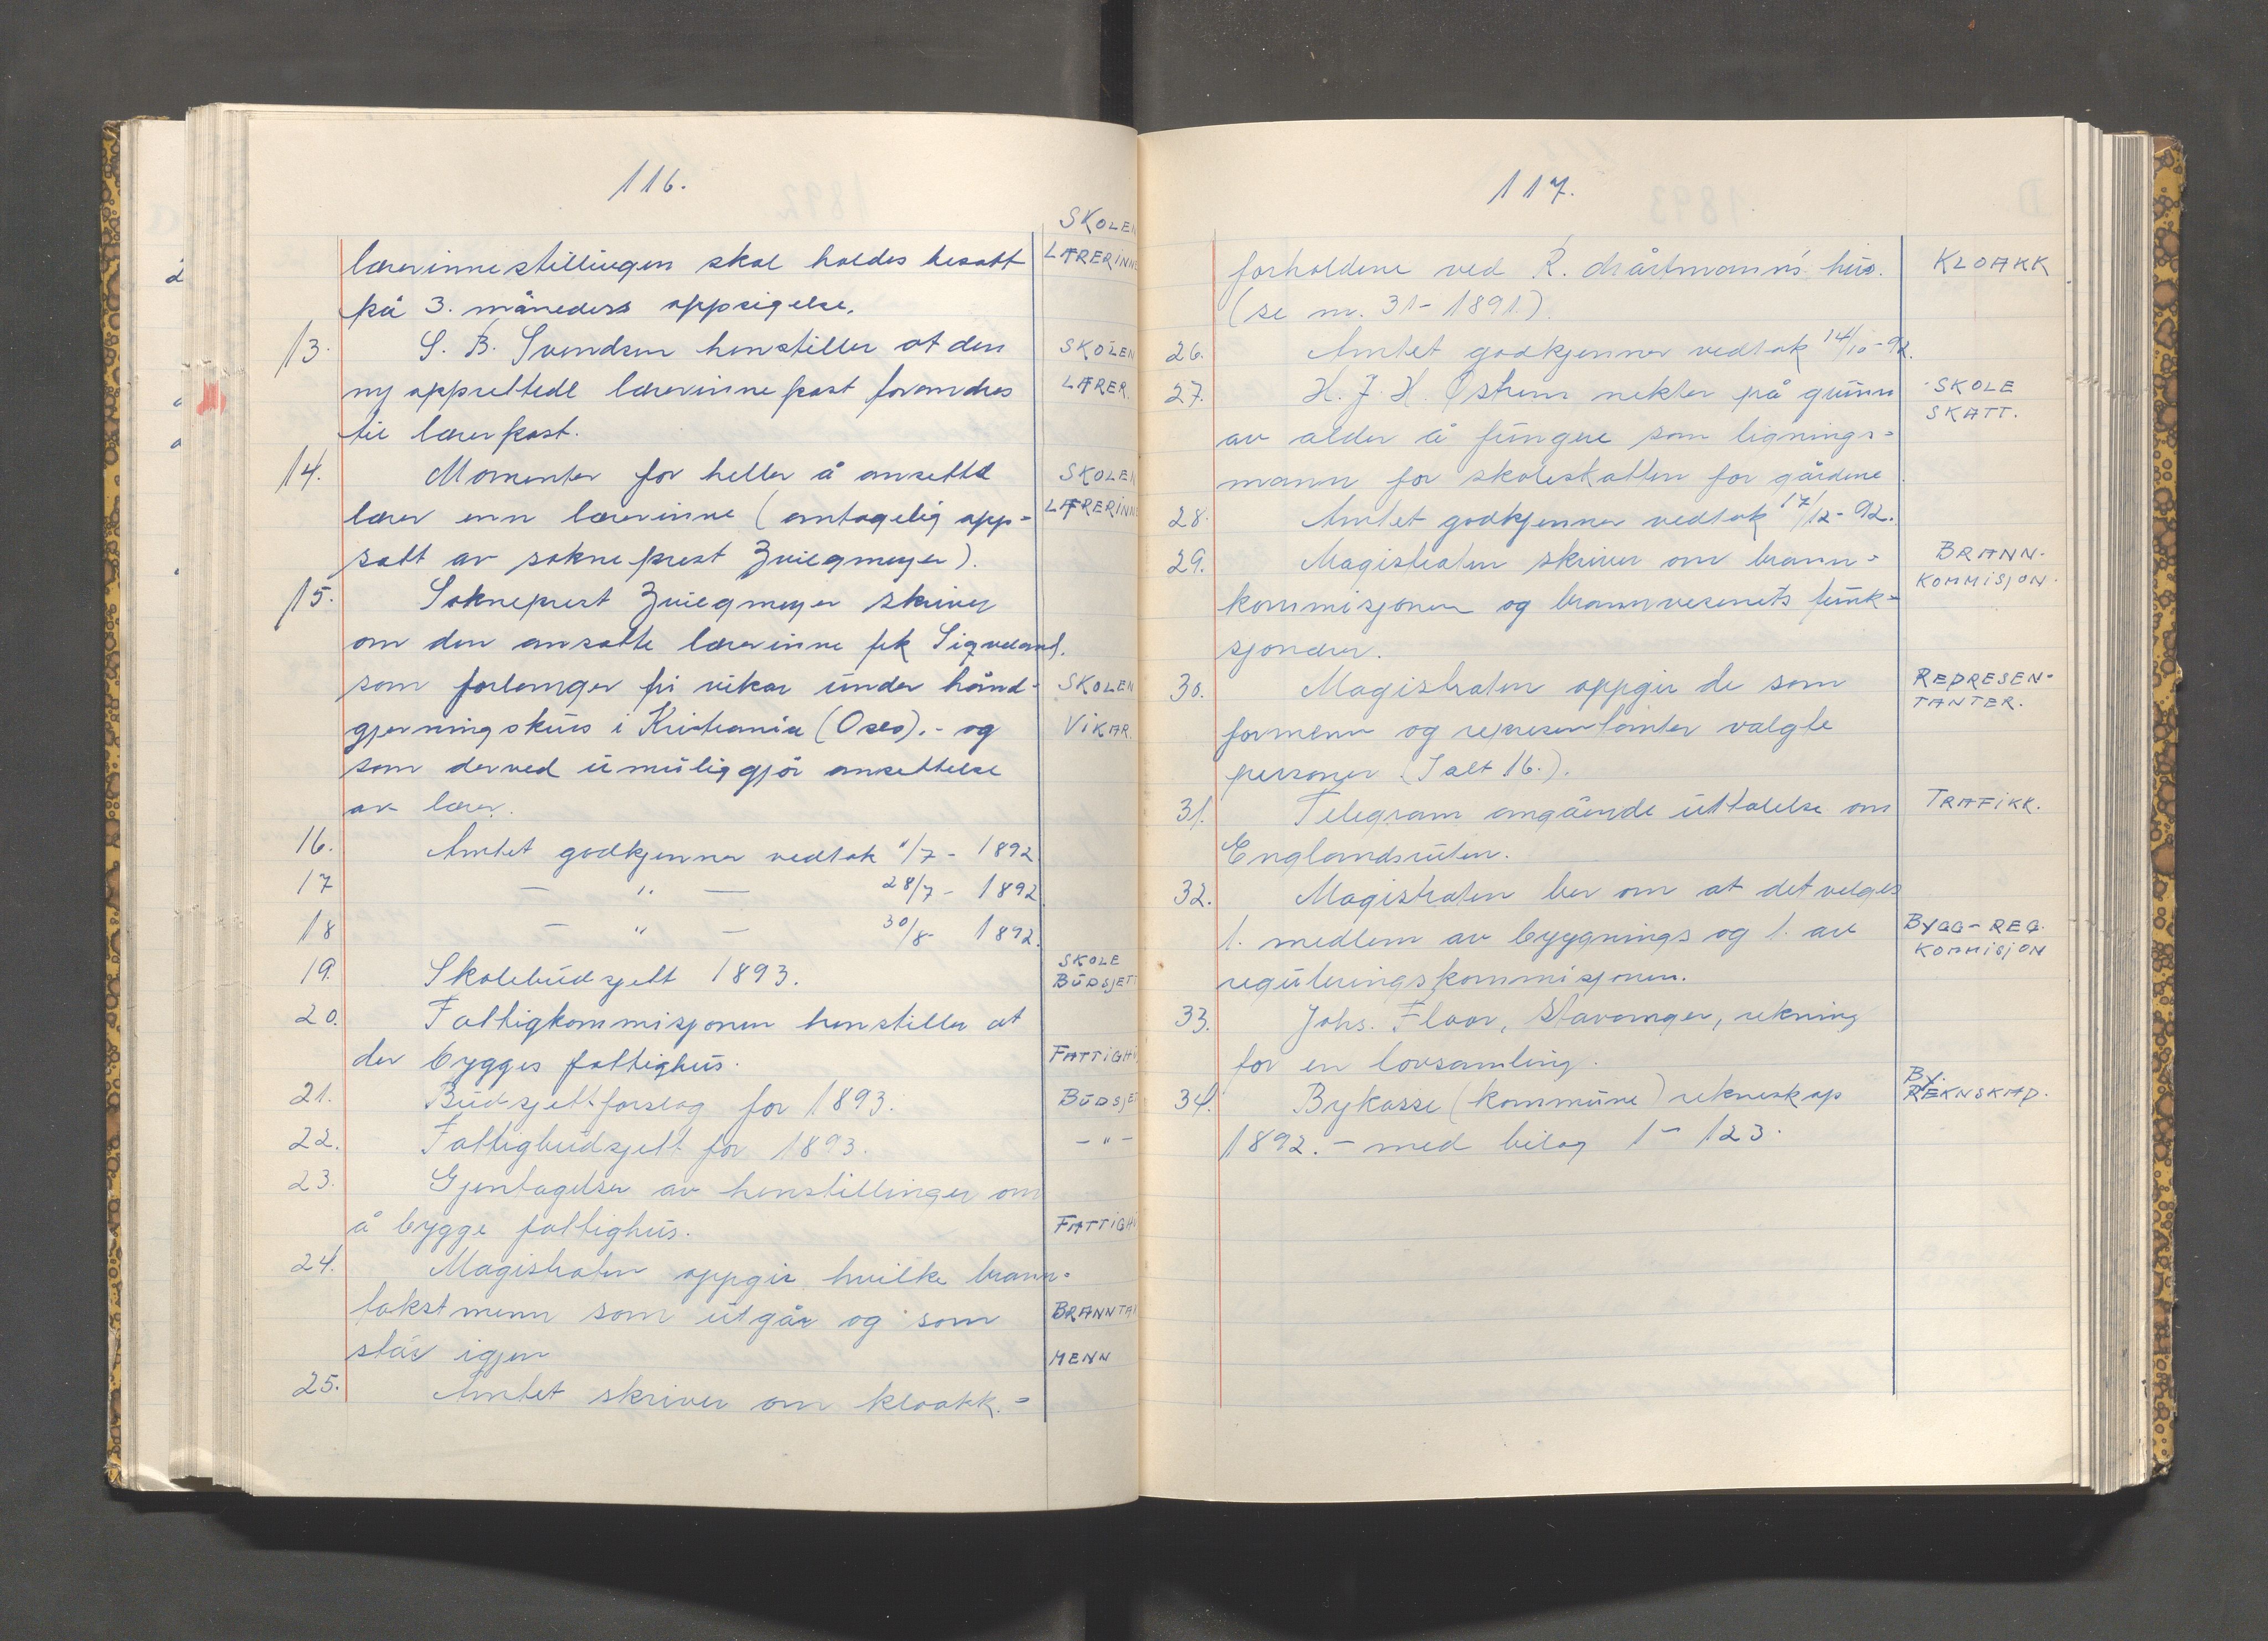 116.
SKOLEN
lærerinnestillingen skal holdes besatt LÆRERINNE
på 3. måneders oppsigelse.
13. S. B. Svendsen henstiller at den SKOLEN
ny opprettede lærerinnepost forandres LÆRER.
til lærerpost.
14. Momenter for heller å ansette SKOLEN
lærer enn lærerinne (antagelig opp= LÆRERINNE
satt av sokneprest Zwilgmeyer).
15. Sokneprest Zwilgmeyer skriver
om den ansatte lærerinne frk Sigveland.
som forlanger fri vikar under hånd- SKOLEN
gjerningskurs i Kristiania (Oslo).- og VIKAR.
som derved umuliggjør ansettelse
av lærer.
16. Amtet godkjenner vedtak 11/7 - 1892
17 — " — 28/7 - 1892
18 — " — 30/8- 1892.
19. Skolebudsjett 1893. SKOLE BUDSJETT
20. Fattigkommisjonen henstiller at
der bygges fattighus. FATTIGHU
21. Budsjettforslag for 1893. BUDSJET
22. Fattigbudsjett for 1893. - " -
23. Gjentagelse av henstillinger om
å bygge fattighus. FATTIGHU
24. Magistraten oppgir hvilke brann=
takstmenn som utgår og som BRANNTAK
står igjen MENN
25. Amtet skriver om kloakk.=
117.
forholdene ved R. hus. KLOAKK
(se nr. 31 - 1891).
26. Amtet godkjenner vedtak 14/10-92.
27. H. J. H. Østrem nekter på grunn SKOLE
av alder å fungere som lignings= SKATT.
mann for skoleskatten for gårdene
28. Amtet godkjenner vedtak 17/12-92.
29. Magistraten skriver om brann= BRANN-
kommisjonen og brannvesenets funk= KOMMISJON.
sjonærer.
30. Magistraten oppgir de som REPRESEN-
formenn og representanter valgte TANTER.
personer (I alt 16.).
31. Telegram angående uttalelse om TRAFIKK.
Englandsruten.
32. Magistraten ber om at det velges
1. medlem av bygnings og 1. av BYGG-REG.
reguleringskommisjonen. KOMMISJON
33. Johs. Floor, Stavanger, rekning
for en lovsamling.
34. Bykasse (kommune) rekneskap BY. REKNSKAP.
1892. - med bilag 1 - 123.